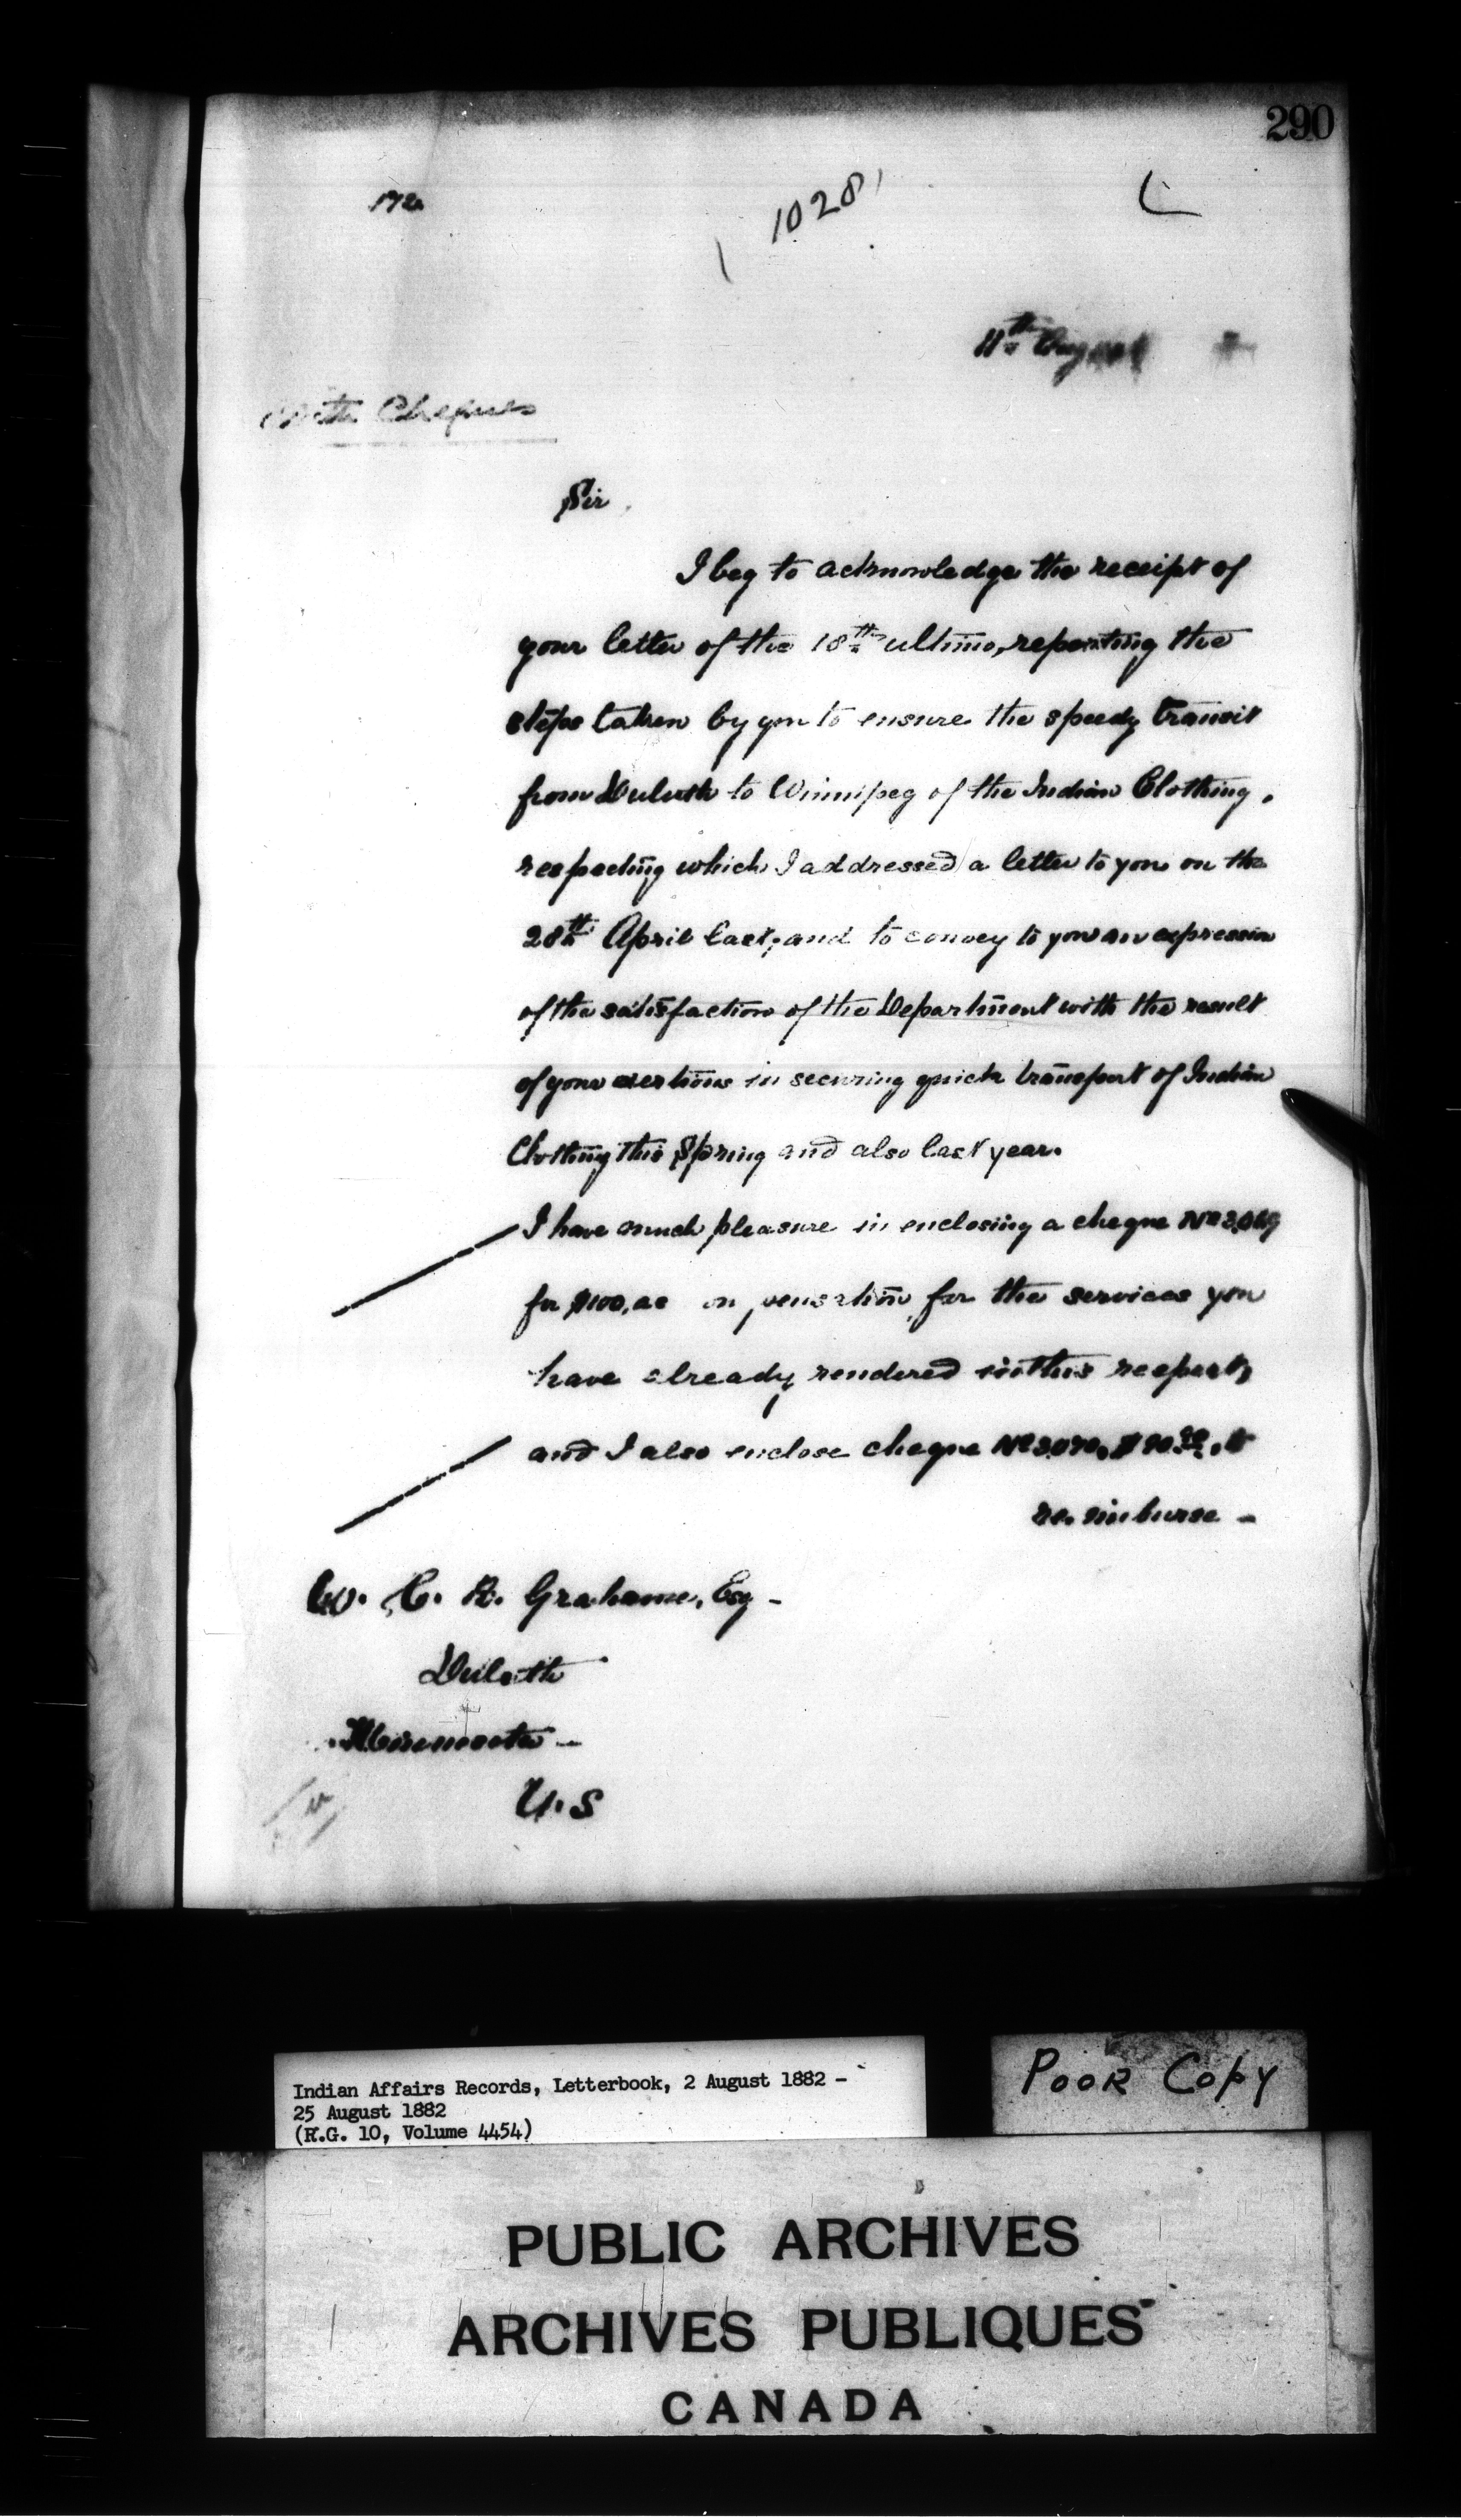 290
1028
11th August
With Cheques
Sir,
I beg to acknowledge the receipt of
your letter of the 18th ultimo, reporting the
steps taken by you to ensure the speedy transit
from Duluth to Winnipeg of the Indian Clothing,
respecting which I addressed a letter to you on the
28th April last; and to convey to you an expression
of the satisfaction of the Department with the result
of your exertions in securing quick transport of Indian
Clothing this Spring and also last year.
I have much pleasure in enclosing a cheque No 3,069
for $100, as compensation for the services you
have already rendered in this respect,
and I also enclose cheque No 3070, to
re-imburse -
W. C. R. Grahame, Esq -
Duluth
Minnesota -
U.S
Indian Affairs Records, Letterbook, 2 August 1882 -
25 August 1882
(R.G. 10, Volume 4454)
POOR COPY
PUBLIC ARCHIVES
ARCHIVES PUBLIQUES
CANADA